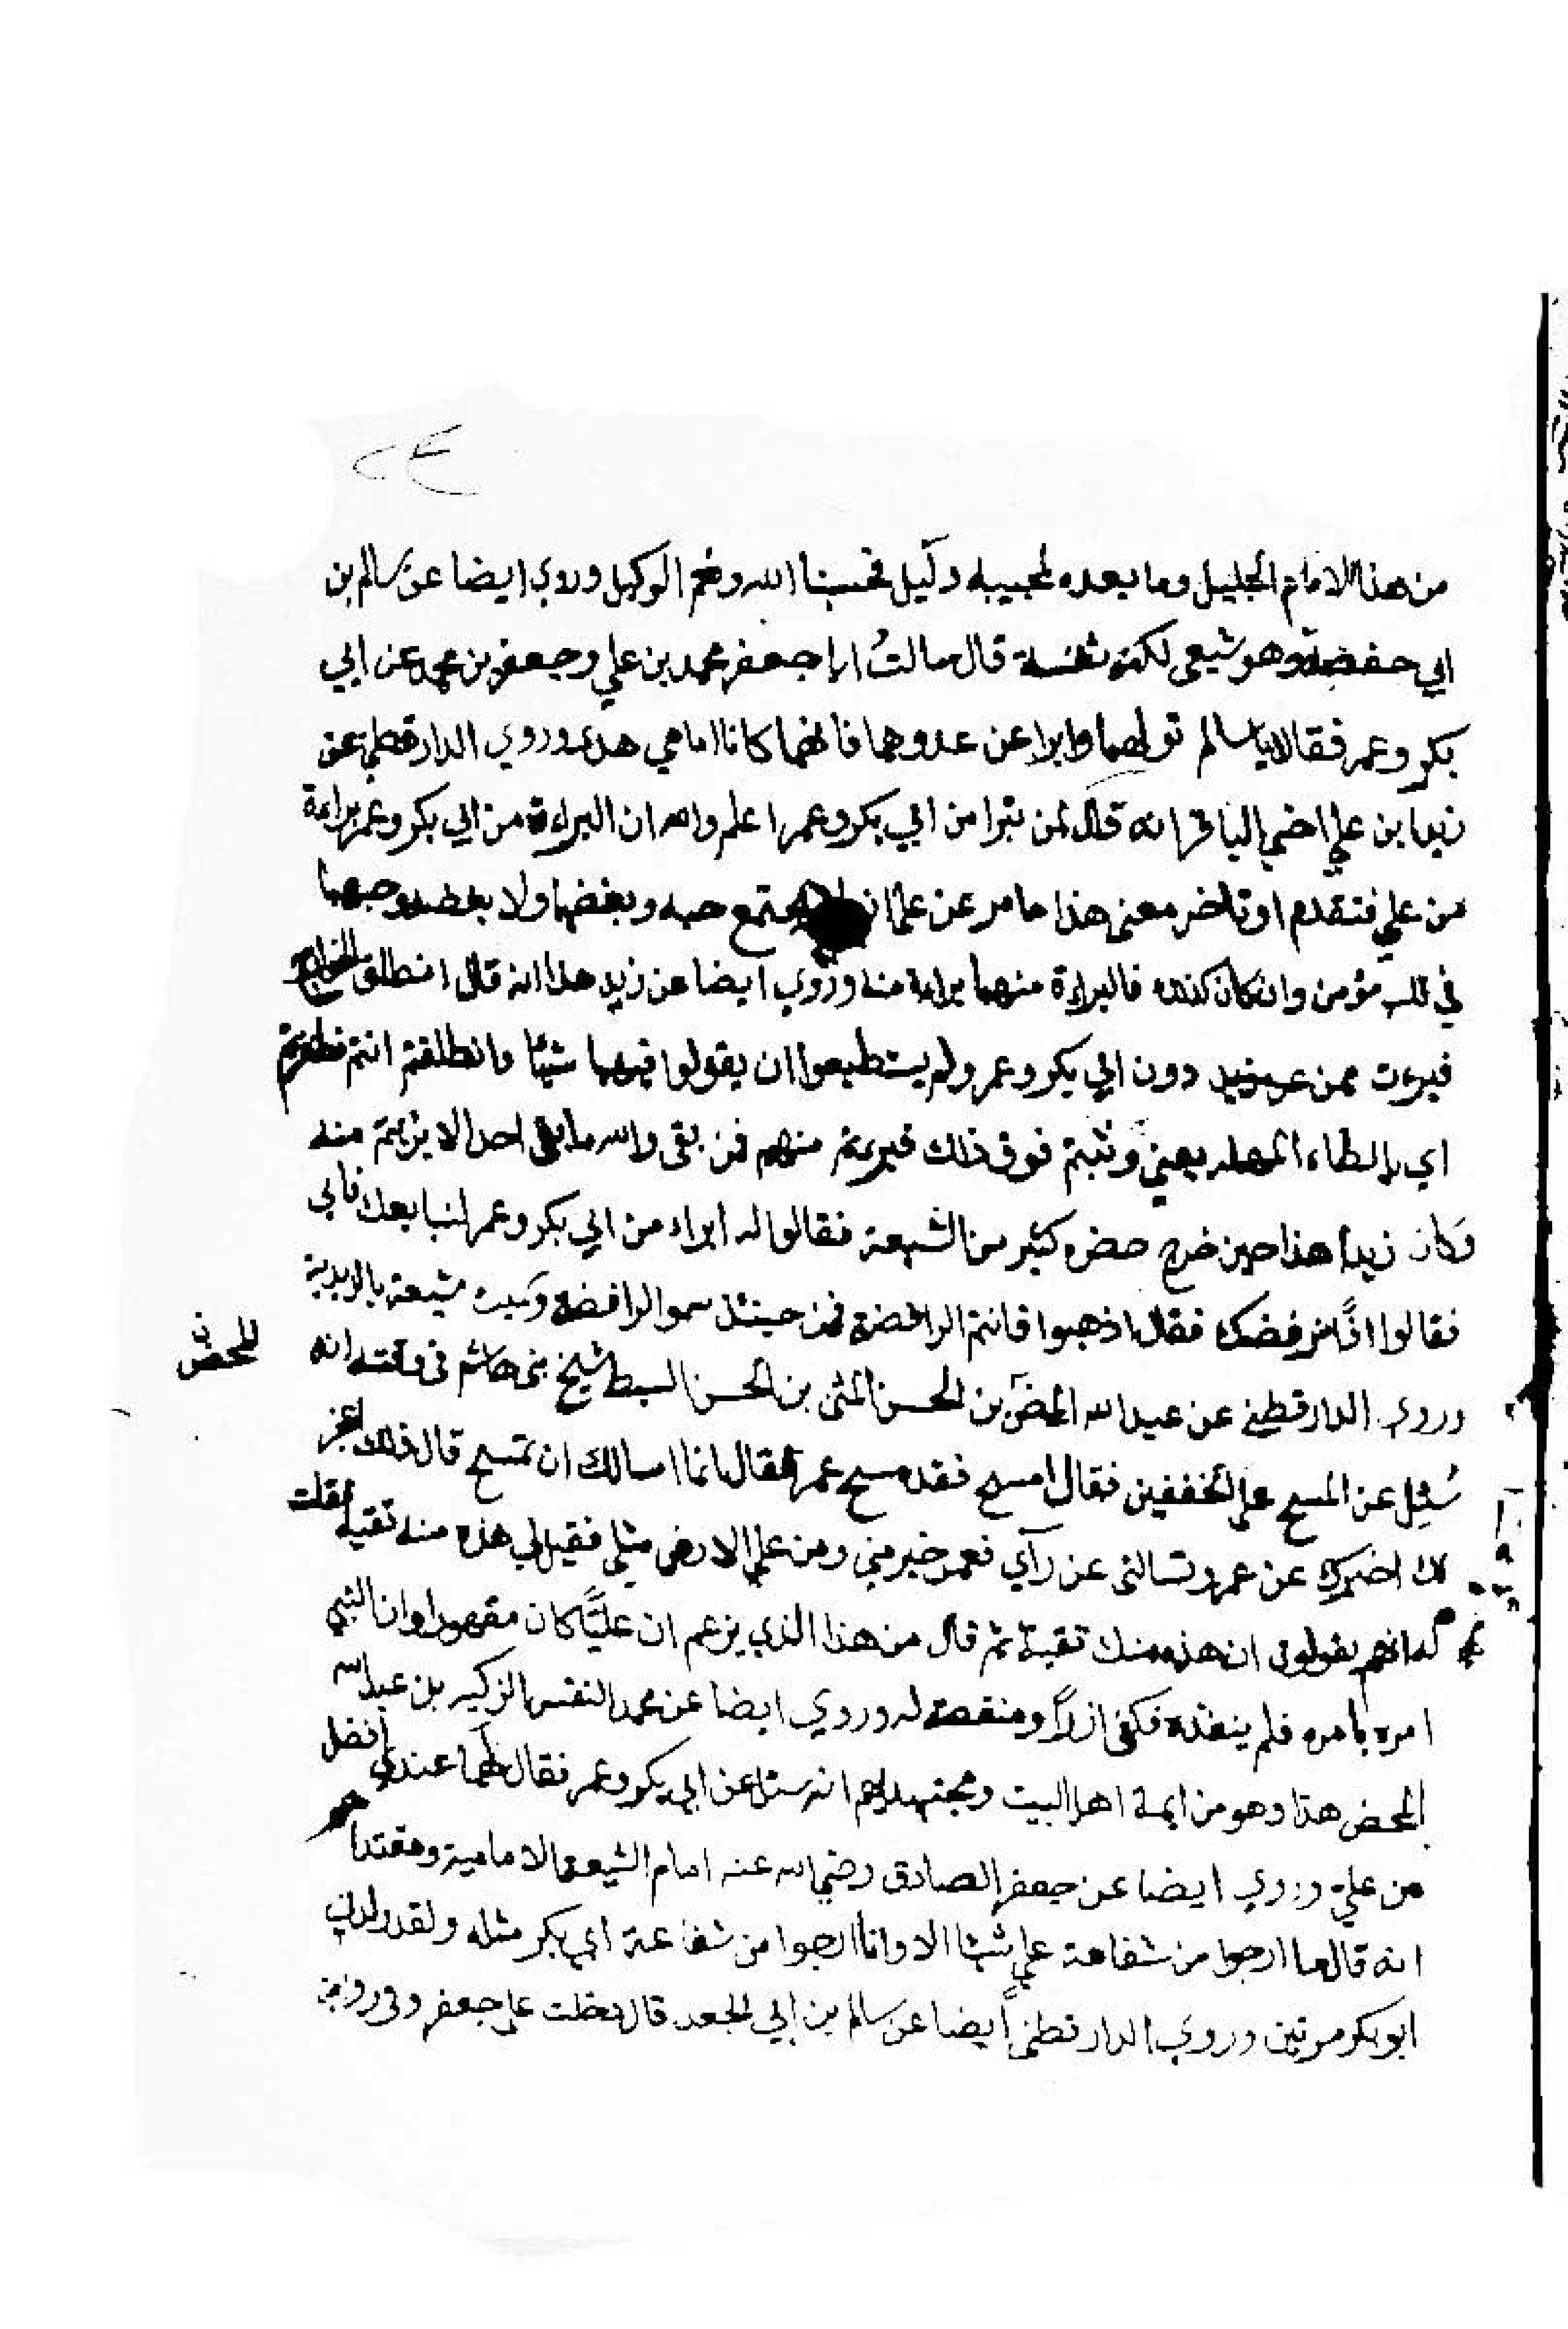 ٢٤
من هذا الامام الجليل وما بعده لمجيبه دليل فحسبنا الله ونعم الوكيل وروي ايضا عن سالم بن
ابي حفصة وهو شيعي لكنه ثقة قال سالتُ ابا جعفر محمد بن علي وجعفر بن محمد عن ابي
بكر وعمر فقالا يا سالم تولهما وابرا عن عدوهما فانهما كانا امامي هدى وروي الدارقطني عن
زيد ابن علي اخي الباقر انه قال لمن تبرا من ابي بكر وعمر اعلم والله ان البراءة من ابي بكر وعمر براءة
من علي فتقدم او تاخر معنى هذا ما مر عن علي انه يجتمع حبه وبغضهما ولا بغضه وحبهما
في قلب مؤمن وان كان كذلك فالبراءة منهما براءة منه وروي ايضا عن زيد هذا انه قال انطلق الخوارج
فبرءت ممن دون ابي بكر وعمر ولم يستطيعوا ان يقولوا فيهما شيئا وانطلقتم انتم فطفرتم
اي بالطاء المهملة يعني وثبتم فوق ذلك فبرءتم منهم فمن بقى والله ما بقي احد الا برئتم منه
وكان زيدا هذا حين خرج حضره كثير من الشيعة فقالوا له ابراء من ابي بكر وعمر لنبايعك فابى
فقالوا انًا نرفضك فقال اذهبوا فانتم الرافضة فمن حينئذ سموا الرافضة وسميت شيعته بالزيدية
وروى الدارقطني عن عبد الله المحض بن الحسن المثنى بن الحسن السبط شيخ بني هاشم في وقته انه
للمحض في
سُئِل عن المسح على الخففين فقال امسح فقد مسح عمر فقال انما اسالك ان تمسح قال ذلك اعجز
لك اخبرك عن عمر وتسالني عن رآي فعمر خير مني ومن على الارض مثلي فقيل لي هذه منه تقية فقلت
له انهم يقولون ان هذه منك تقية ثم قال من هذا الذي يزعم ان عليًّا كان مقهورا وان النبي
امره بامره فلم ينفذه فكفى ازراً ومنقصة له وروي ايضا عن محمد النفس الزكيه بن عبد الله
المحض هذا وهو من ايمة اهل البيت ومجتهديهم انه سئل عن ابي بكر وعمر فقال لهما عندي افضل
من علي وروي ايضا عن جعفر الصادق رضي الله عنه امام الشيعة الامامية ومقتداهم
انه قال ما ارجوا من شفاعة علي شيئا الا وانا ارجوا من شفاعة ابي بكر مثله ولقد ولدني
ابو بكر مرتين وروي الدارقطني أيضا عن سالم بن ابي الجعد قال دخلت على جعفر وفي رواية